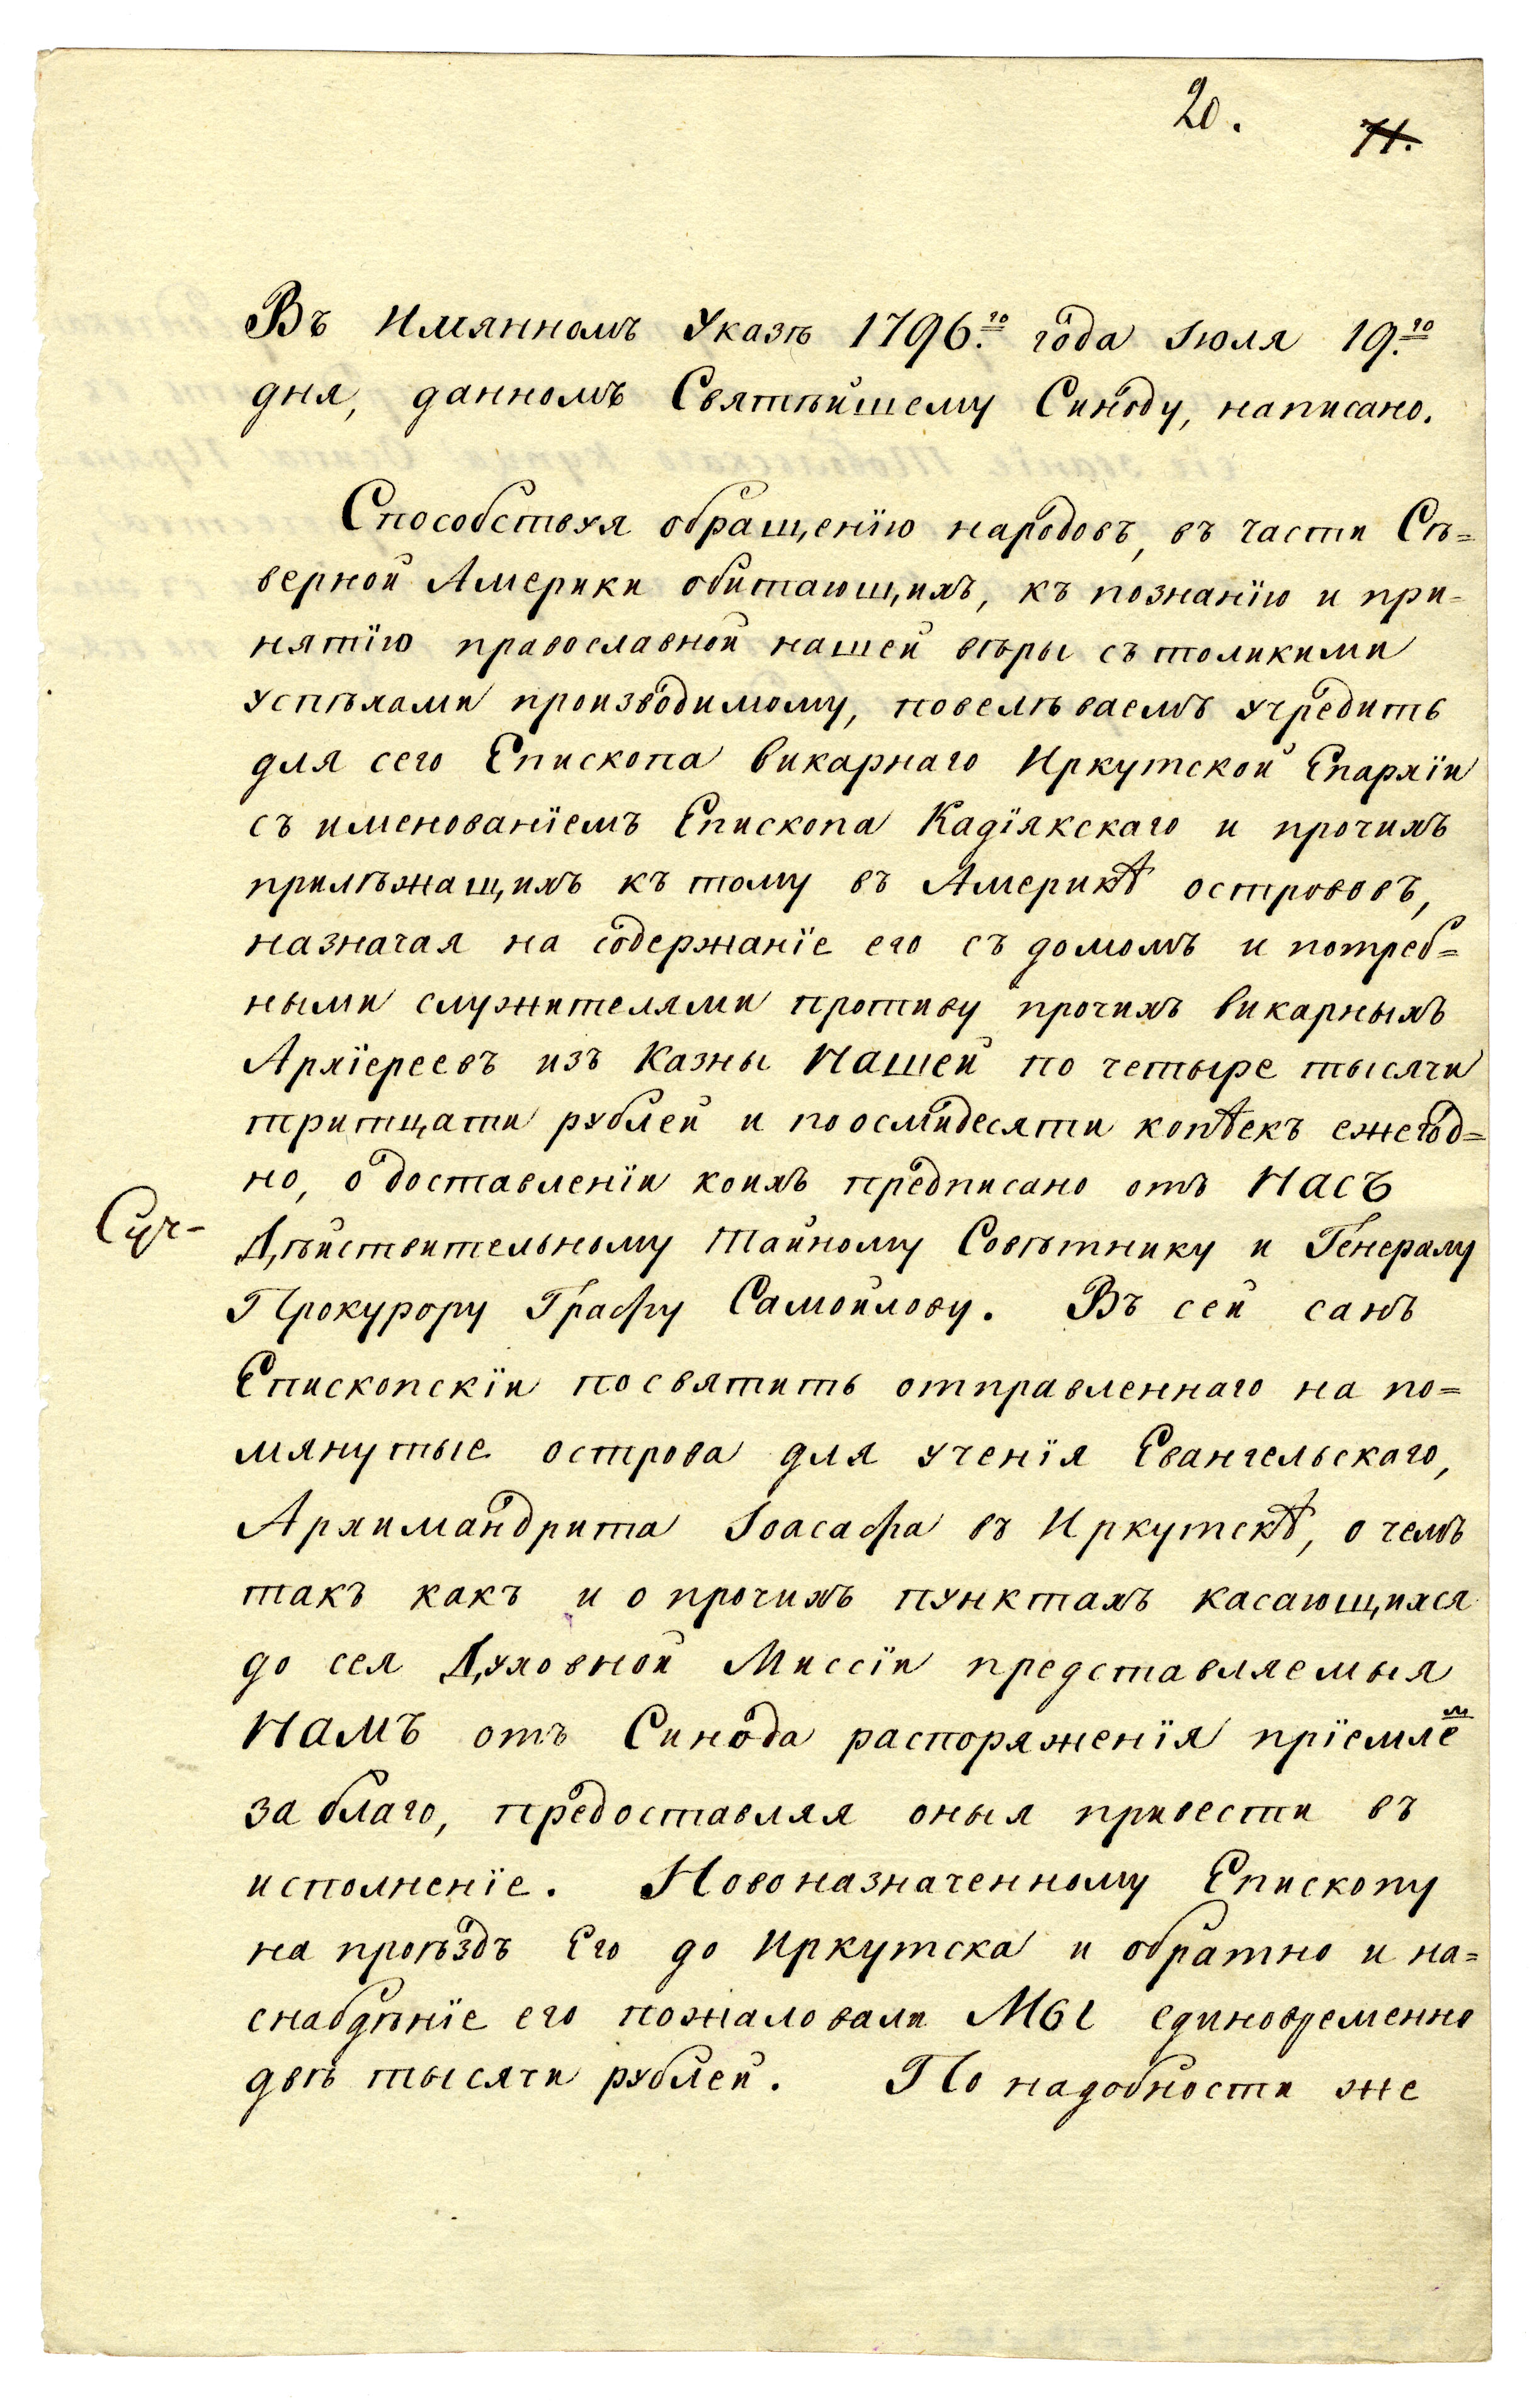 20. 11.
Въ Имянномъ Указѣ 1796.го года Іюля 19.го
дня, данномъ Святѣйшему Синоду, написано.
Способствуя обращенїю народовъ, въ части Сѣ=
верной Америки обитающихъ, къ познанїю и при=
нятїю православной нашей вѣры съ толикими
успѣхами производимому, повелѣваемъ учредить
для сего Епископа викарнаго Иркутской Епархїи
съ именованїемъ Епископа Кадїякскаго и прочихъ
прилѣжащихъ къ тому въ Америкѣ острововъ,
назначая на содержанїе его съ домомъ и потреб=
ными служителями противу прочихъ викарныхъ
Архїереевъ изъ Казны Нашей по четыре тысячи
тритцати рублей и по осмидесяти копѣекъ ежегод=
но, о доставленїи коихъ предписано отъ НАСЪ
Дѣйствительному Тайному Совѣтнику и Генералу
Прокурору Графу Самойлову. Въ сей санъ
Епископскїи посвятить отправленнаго на по=
мянутые острова для ученїя Евангельскаго,
Архимандрита Іоасафа въ Иркутскѣ, о чемъ
такъ какъ и о прочихъ пунктахъ касающихся
до сея Духовной Миссїи представляемыя
НАМЪ отъ Синода распоряженїя прїемлем
за благо, предоставляя оныя привести въ
исполненїе. Новоназначенному Епископу
на проѣздъ Его до Иркутска и обратно и на=
снабдѣнїе его пожаловали МЫ единовременно
двѣ тысячи рублей. По надобности же